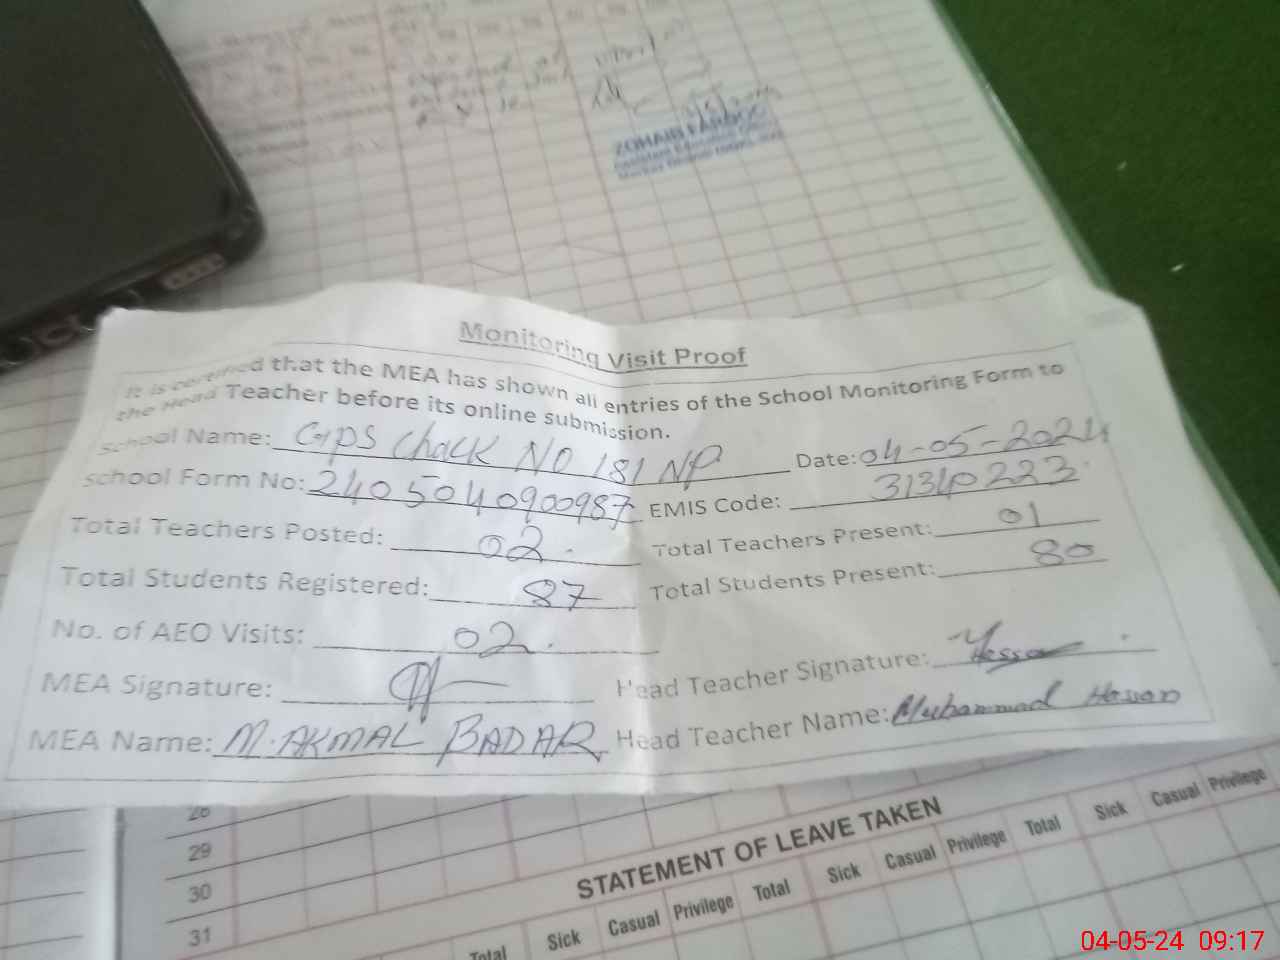 ZOHAIB FAROOQ
Monitoring Visit Proof
It is certified that the MEA has shown all entries of the School Monitoring Form to
the Head Teacher before its online submission.
School Name: GPS Chack NO 181 NP Date: 04-05-2024
School Form No: 2405040900987 EMIS Code: 31340223
Total Teachers Posted: 02. Total Teachers Present: 01
Total Students Registered: 87 Total Students Present: 80
No. of AEO Visits: 02.
MEA Signature: Head Teacher Signature: Hassan
MEA Name: M.AKMAL BADAR Head Teacher Name: Muhammad Hassan
28
29
30
31
STATEMENT OF LEAVE TAKEN
Total Sick Casual Privilege Total Sick Casual Privilege Total Sick Casual Privilege
04-05-24 09:17